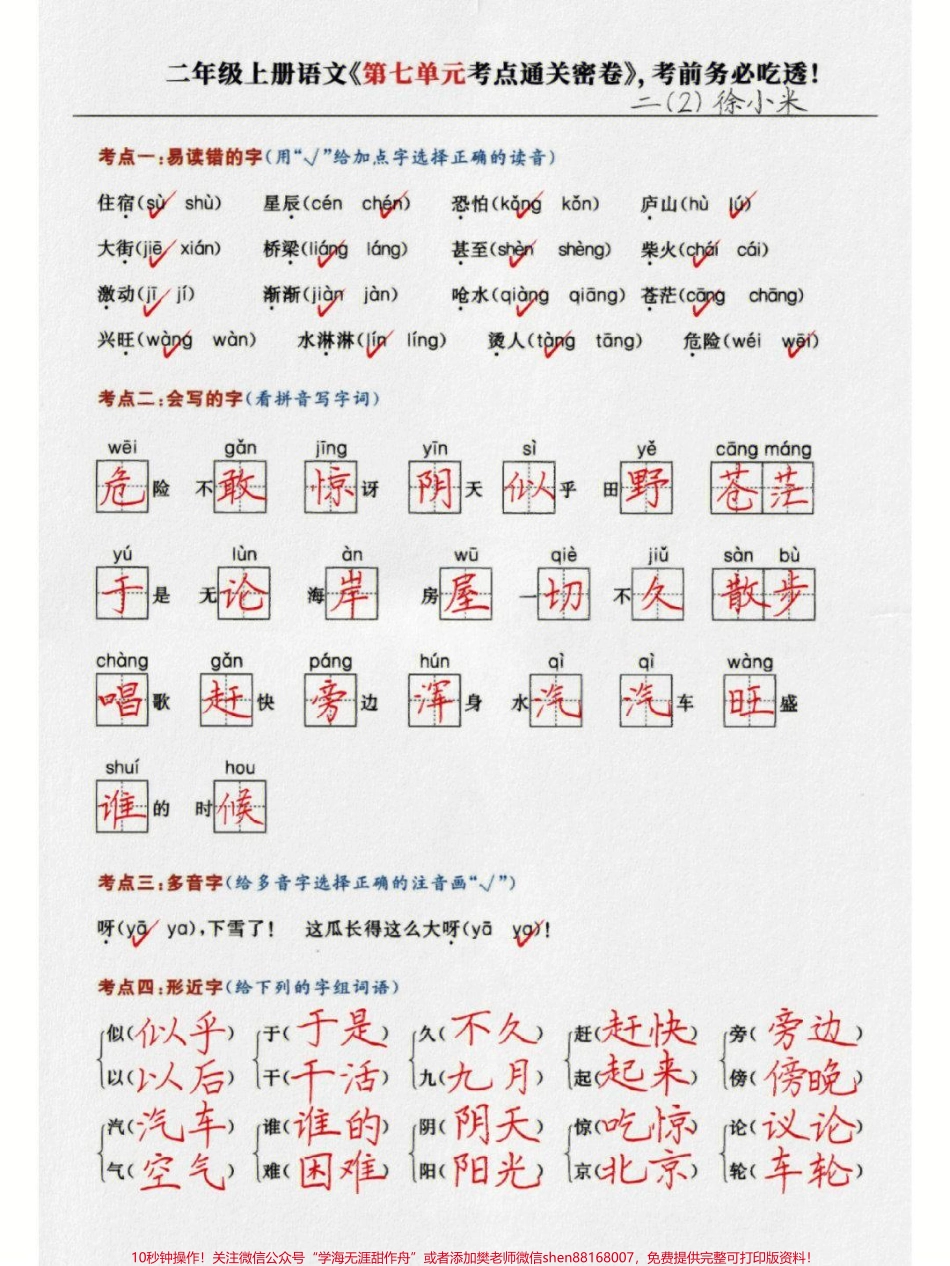 二年级上册语文《第七单元考点通关密卷》,考前务必吃透!
二(2)徐小米
考点一:易读错的字(用“√”给加点字选择正确的读音)
住宿(sù✓ shù) 星辰(cén chén✓) 恐怕(kǒng✓ kǒn) 庐山(hù lú✓)
大街(jiē✓ xián) 桥梁(liáng✓ láng) 甚至(shèn✓ shèng) 柴火(chái✓ cái)
激动(jī✓ jí) 渐渐(jiàn✓ jàn) 呛水(qiàng✓ qiāng) 苍茫(cāng✓ chāng)
兴旺(wàng✓ wàn) 水淋淋(lín✓ líng) 烫人(tàng✓ tāng) 危险(wéi wēi✓)
考点二:会写的字(看拼音写字词)
wēi gǎn jīng yīn sì yě cāng máng
危险 不敢 惊讶 阴天 似乎 田野 苍茫
yú lùn àn wū qiè jiǔ sàn bù
于是 无论 海岸 房屋 一切 不久 散步
chàng gǎn páng hún qì qì wàng
唱歌 赶快 旁边 浑身 水汽 汽车 旺盛
shuí hou
谁的 时候
考点三:多音字(给多音字选择正确的注音画“√”)
呀(yā✓ ya),下雪了! 这瓜长得这么大呀(yā ya✓)!
考点四:形近字(给下列的字组词语)
似(似乎) 于(于是) 久(不久) 赶(赶快) 旁(旁边)
以(以后) 干(干活) 九(九月) 起(起来) 傍(傍晚)
汽(汽车) 谁(谁的) 阴(阴天) 惊(吃惊) 论(议论)
气(空气) 难(困难) 阳(阳光) 京(北京) 轮(车轮)
10秒钟操作!关注微信公众号“学海无涯甜作舟”或者添加樊老师微信shen88168007,免费提供完整可打印版资料!